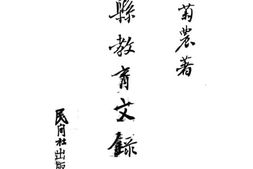 菊農著
縣教育文錄
民间社出版